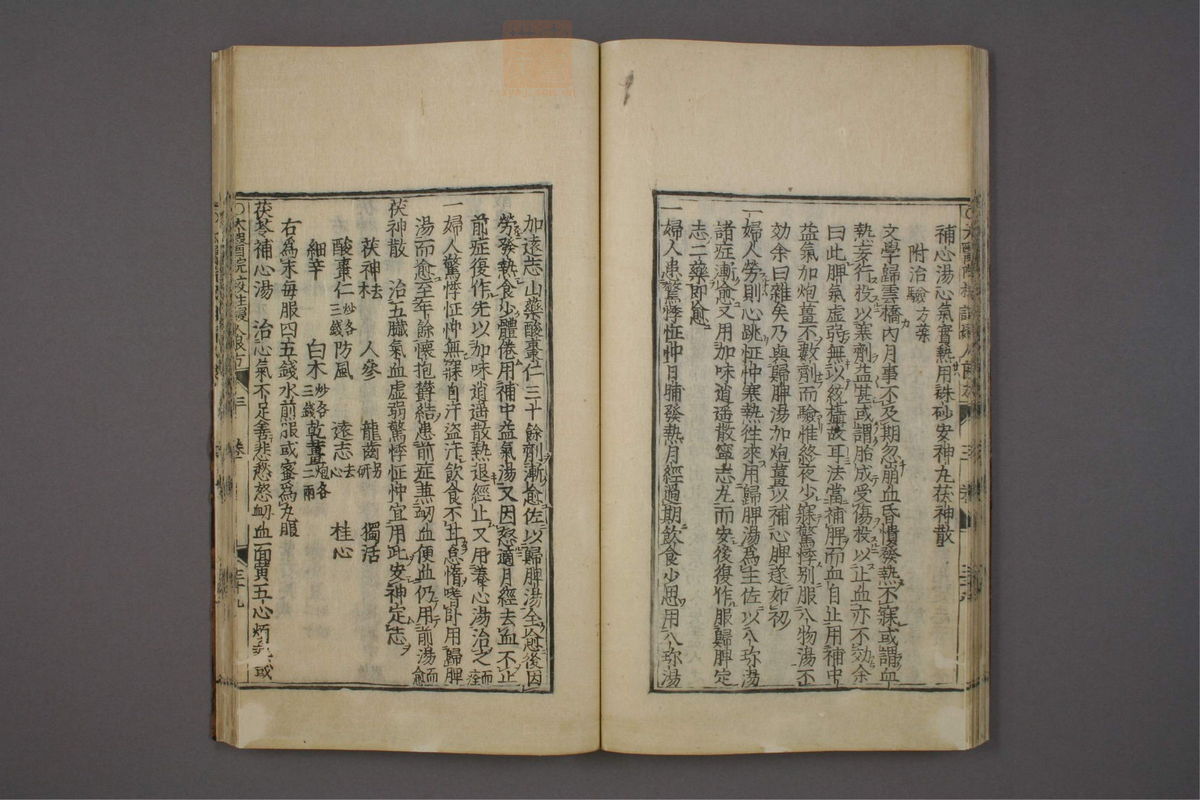 補心湯心氣實熱用硃砂安神丸茯神散
附治驗方藥
文學歸雲橋內月事不及期忽崩血昏憒發熱不寐或謂血
熱妄行投以寒劑益甚或謂胎成受傷投以止血亦不効余
曰此脾氣虛弱無以統攝故耳法當補脾而血自止用補中
益氣加炮薑不數劑而驗惟終夜少寐驚悸別服八物湯不
効余曰雜矣乃與歸脾湯加炮薑以補心脾遂如初
一婦人勞則心跳怔忡寒熱徃來用歸脾湯為主佐以八珍湯
諸症漸愈又用加味逍遥散寧志丸而安後復作服歸脾定
志二藥即愈
一婦人患驚悸怔忡日晡發熱月經過期飲食少思用八珍湯
加遠志山藥酸棗仁三十餘劑漸愈佐以歸脾湯全愈後因
勞發熱食少體倦用補中益氣湯又因怒適月經去血不止
前症復作先以加味逍遥散熱退經止又用養心湯治之而痊
一婦人驚悸怔忡無寐自汗盜汗飲食不甘怠惰嗜卧用歸脾
湯而愈至年餘懷抱欝結患前症兼衂血便血仍用前湯而愈
茯神散　治五臟氣血虛弱驚悸怔忡宜用此安神定志
茯神去木　人參　龍齒另研　獨活
酸棗仁炒各三錢　防風　遠志去心　桂心
細辛　白朮炒各三錢　乾薑炮各二兩
右為末每服四五錢水煎服或蜜為丸服
茯苓補心湯　治心氣不足善悲愁怒衂血面黃五心煩熱或
三　卷　三十九